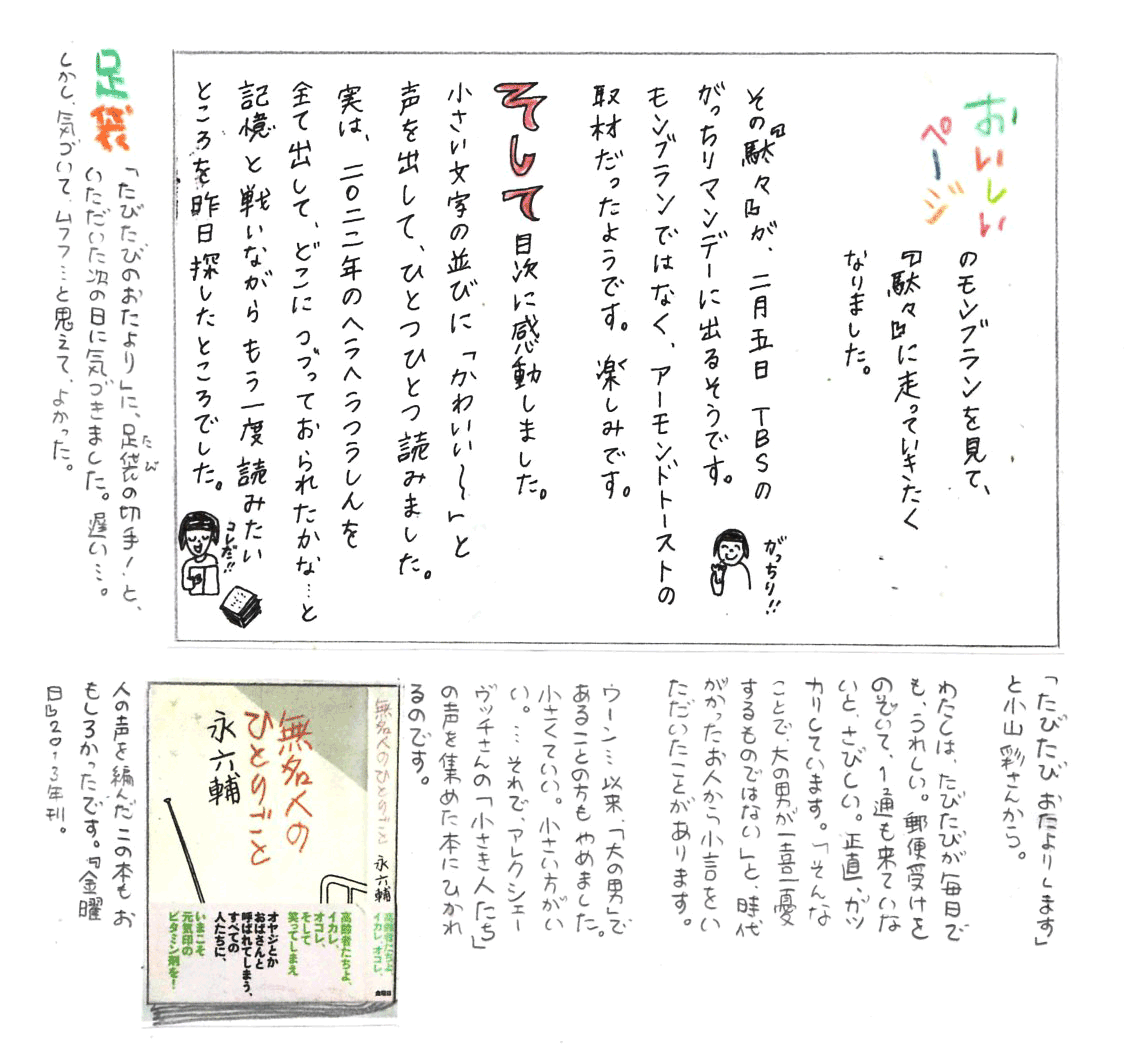 おいしい
ページ
のモンブランを見て、
『駄々』に走っていきたく
なりました。
その『駄々』が、二月五日 TBSの
がっちりマンデーに出るそうです。
モンブランではなく、アーモンドトーストの
取材だったようです。楽しみです。
がっちり!!
そして
目次に感動しました。
小さい文字の並びに「かわいい〜」と
声を出して、ひとつひとつ読みました。
実は、二〇二二年のヘラヘラつうしんを
全て出して、どこにつづっておられたかな…と
記憶と戦いながらもう一度読みたい
ところを昨日探したところでした。
コレだ!!
足袋
「たびたびのおたより」に、足袋の切手!と、
たび
いただいた次の日に気づきました。遅い…。
しかし、気づいて、ムフフ…と思えて、よかった。
「たびたびおたよりします」
と小山彩さんから。
わたしは、たびたびが毎日で
も、うれしい。郵便受けを
のぞいて、1通も来ていな
いと、さびしい。正直、ガッ
カリしています。「そんな
ことで、大の男が一喜一憂
するものではない」と、時代
がかったお人から小言をい
ただいたことがあります。
ウーン…以来、「大の男」で
あることの方もやめました。
小さくていい。小さい方がい
い。…それで、アレクシェー
ヴッチさんの「小さき人たち」
の声を集めた本にひかれ
るのです。
無名人のひとりごと
永六輔
高齢者たちよ、
イカレ、オコレ、
金曜日
無名人の
ひとりごと
永六輔
高齢者たちよ、
イカレ、
オコレ、
そして
笑ってしまえ
オヤジとか
おばさんと
呼ばれてしまう、
すべての
人たちに、
いまこそ
元気印の
ビタミン剤を!
人の声を編んだこの本もお
もしろかったです。『金曜
日』2013年刊。